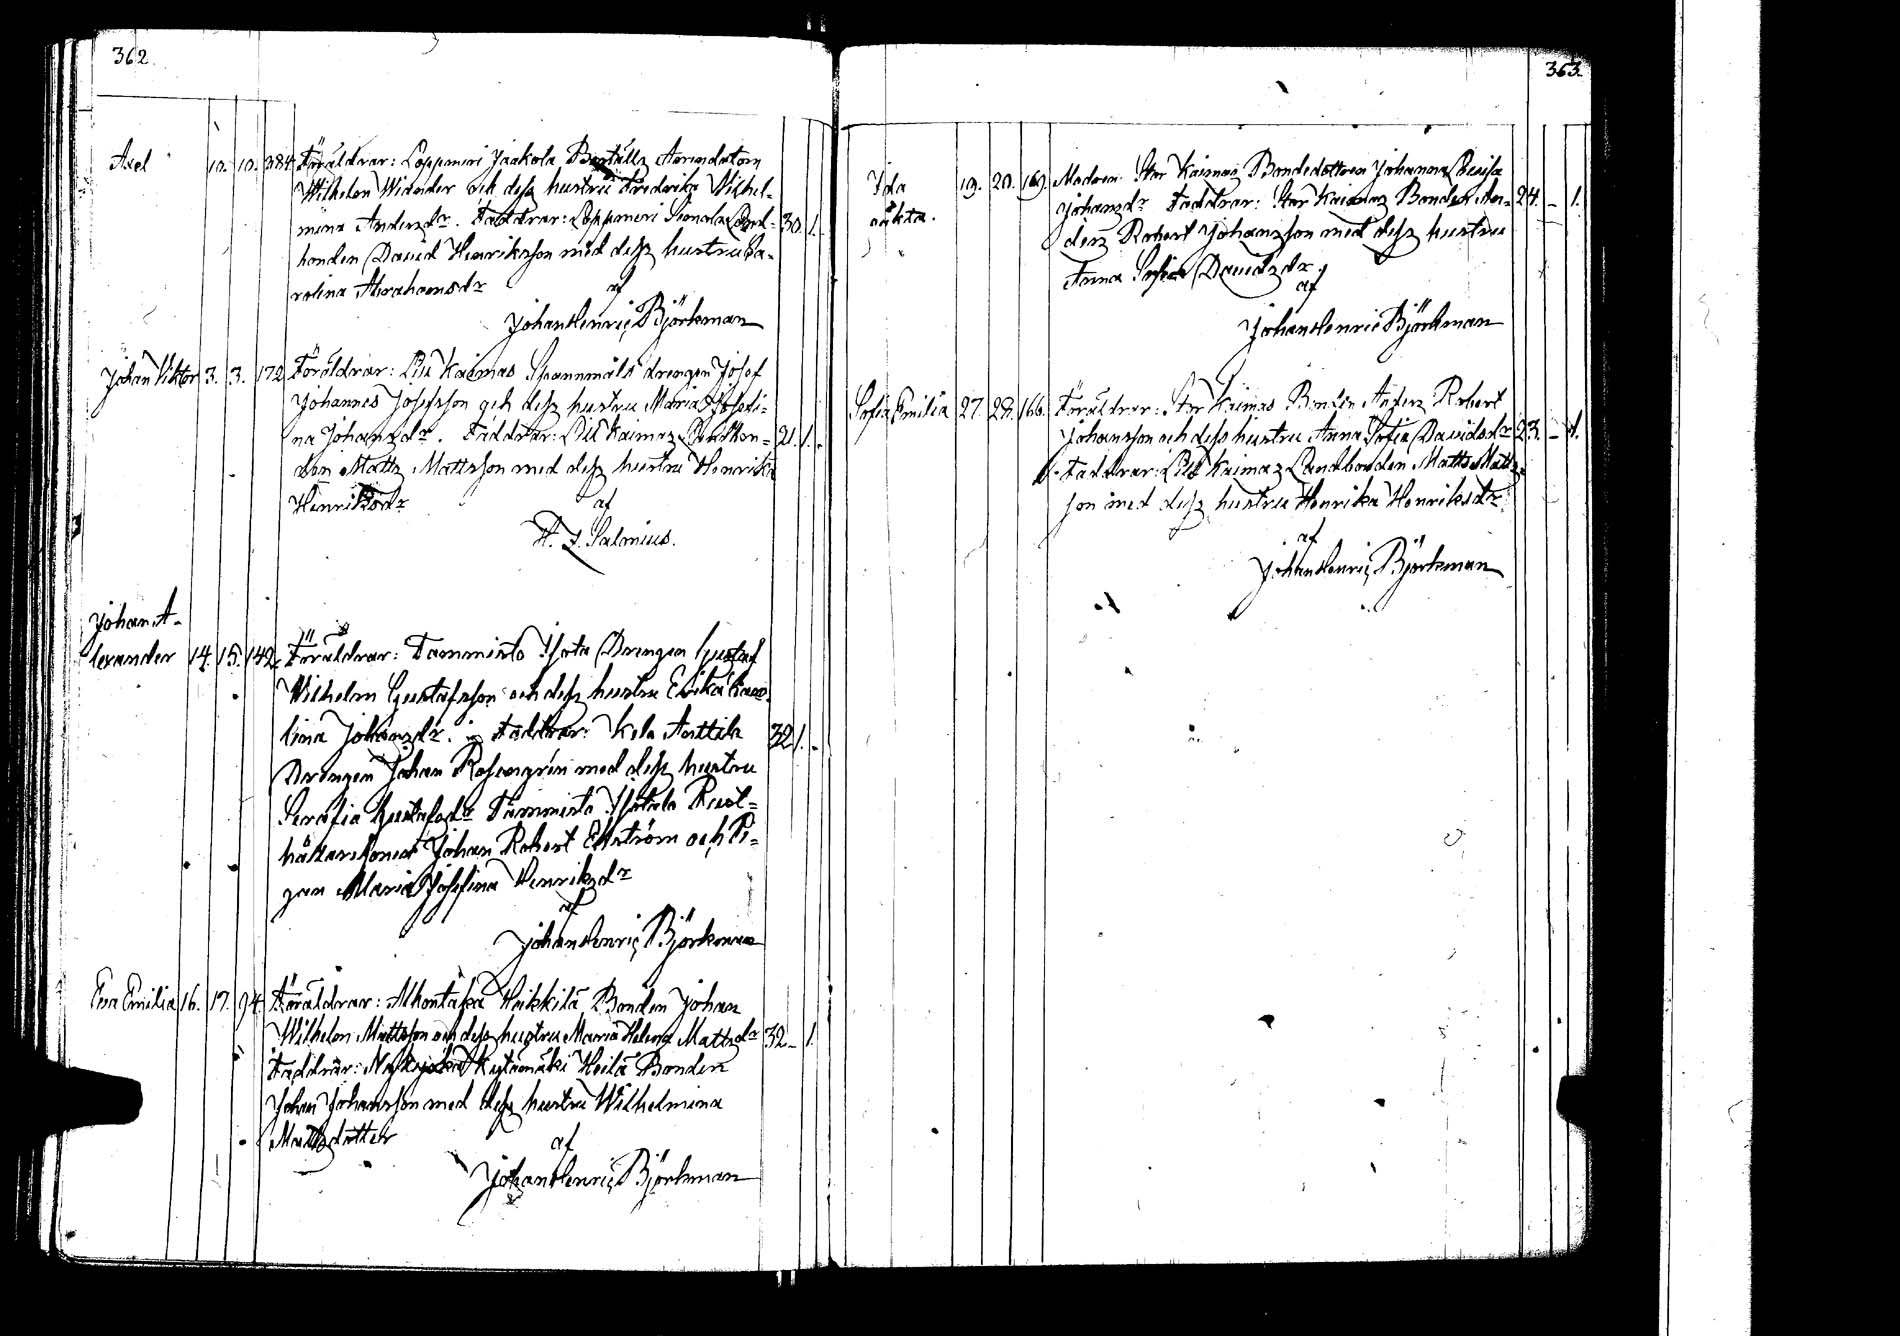 362.
Axel 10. 10. 384 Föräldrar: Loppmeri Jaakola Boställs Arrendatorn
Wilhelm Widender och dess hustru Fredrika Vilhel-
mina Andersdr. Faddrar: Loppmeri Simola Land- 30. 1.
bonden David Henriksson med dess hustru Ca-
rolina Abrahamsdr
af
Johan Henric Björkman
Johan Viktor 3. 3. 172 Föräldrar: Lill Kaimas Spannmåls drengen Josef
Johannes Josefsson och dess hustru Maria Josefi-
na Johansdr. Faddrar: Lill Kaimas Landbon- 21. 1.
den Matts Mattsson med dess hustru Henrika
Henriksdr
af
H. J. Salmius.
Johan A-
lexander 14. 15. 142. Föräldrar: Tammisto Drengen Gustaf
Wilhelm Gustafsson och dess hustru Erika Karo-
lina Johansdr. Faddrar: Kola Anttila 32 1.
Drengen Johan Rosengrén med dess hustru
Serafia Gustafsdr Tammisto Rust-
hållaresonen Johan Robert Ekström och Pi-
gan Maria Josefina Henriksdr
af
Johan Henric Björkman
Eva Emilia 16. 17. 94. Föräldrar: Alhontaka Heikkilä Bonden Johan
Wilhelm Mattsson och dess hustru Maria Helena Mattsdr 32 - 1.
Faddrar: Kytömäki Heilä Bonden
Johan Johansson med dess hustru Wilhelmina
Mattsdotter
af
Johan Henric Björkman
363.
Ida 19. 20. 169. Modren: Stor Kaimas Bondedottren Johanna Lovisa
oäkta. Johansdr Faddrar: Stor Kaimas Bonden An- 24. - 1.
ders Robert Johansson med dess hustru
Anna Sofia Davidsdr
af
Johan Henric Björkman
Sofia Emilia 27. 28. 166. Föräldrar: Stor Kaimas Bonden Anders Robert
Johansson och dess hustru Anna Sofia Davidsdr 23. - 1.
Faddrar: Lill Kaimas Landbonden Matts Matts-
son med dess hustru Henrika Henriksdr
af
Johan Henric Björkman